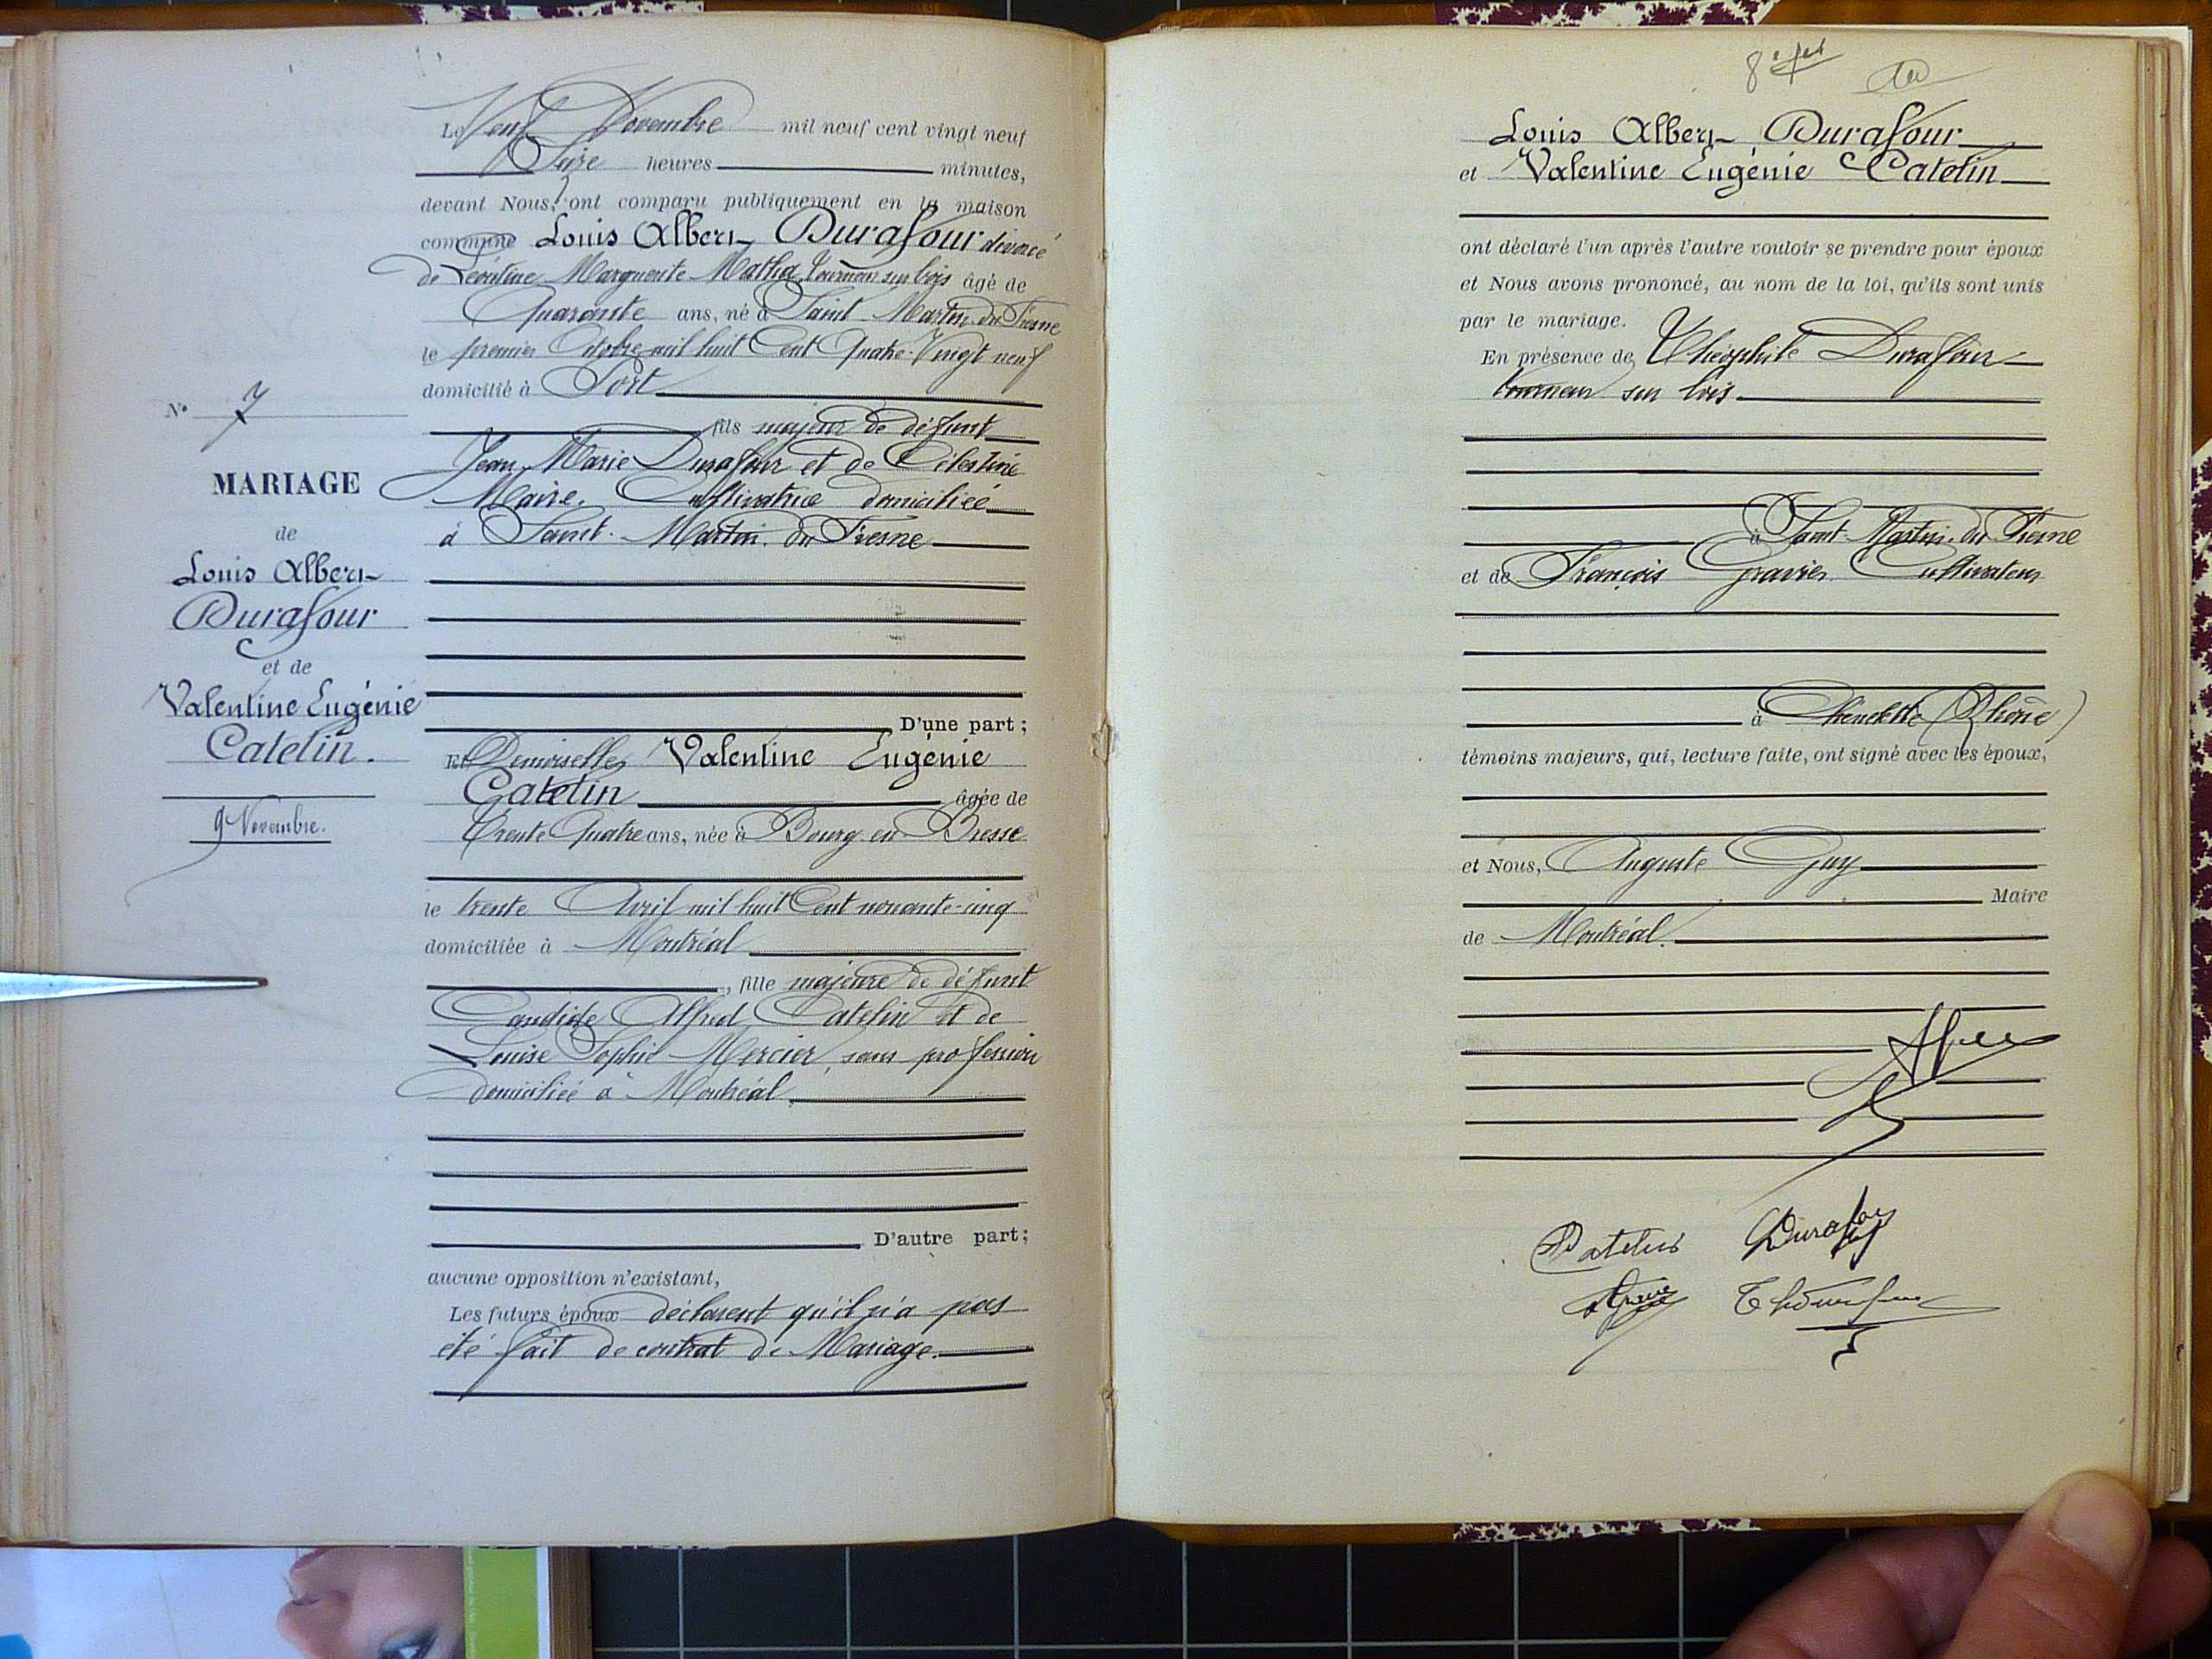 Le Neuf Novembre mil neuf cent vingt neuf
Seize heures minutes,
devant Nous, ont comparu publiquement en la maison
commune Louis Albert Durafour divorcé
de Léontine Marguerite Matha, tourneur sur bois âgé de
Quarante ans, né à Saint Martin du Fresne
le premier Octobre mil huit Cent Quatre-Vingt neuf
domicilié à Port
fils majeur de défunt
Jean Marie Durafour et de Célestine
Maire, Cultivatrice domiciliée
à Saint-Martin-du Fresne
N° 7
MARIAGE
de
Louis Albert
Durafour
et de
Valentine Eugénie
Catelin.
9 Novembre.
D'une part;
Et Demoiselle Valentine Eugénie
Catelin âgée de
Trente Quatre ans, née à Bourg-en-Bresse
le trente Avril mil huit Cent nonante-cinq
domiciliée à Montréal
, fille majeure de défunt
Candide Alfred Catelin et de
Louise Sophie Mercier, sans profession
domiciliée à Montréal.
D'autre part;
aucune opposition n'existant,
Les futurs époux déclarent qu'il n'a pas
été fait de contrat de Mariage.
Louis Albert Durafour
et Valentine Eugénie Catelin
ont déclaré l'un après l'autre vouloir se prendre pour époux
et Nous avons prononcé, au nom de la loi, qu'ils sont unis
par le mariage.
En présence de Théophile Durafour
tourneur sur bois
à Saint-Martin-du Fresne
et de François Gravier Cultivateur
à Chénelette (Rhône)
témoins majeurs, qui, lecture faite, ont signé avec les époux,
et Nous, Auguste Guy
Maire
de Montréal.
Catelin Durafour